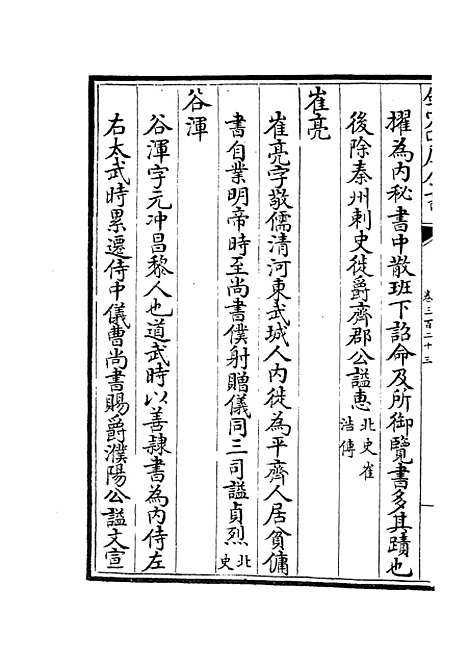 卷三百二十三
擢為内秘書中散班下詔命及所御覽書多其蹟也
後除秦州刺史徙爵齊郡公謚惠北史崔
浩傳
崔亮
崔亮字敬儒清河東武城人内徙為平齊人居貧傭
書自業明帝時至尚書僕射贈儀同三司謚貞烈北
史
谷渾
谷渾字元冲昌黎人也道武時以善隷書為内侍左
右太武時累遷侍中儀曹尚書賜爵濮陽公謚文宣